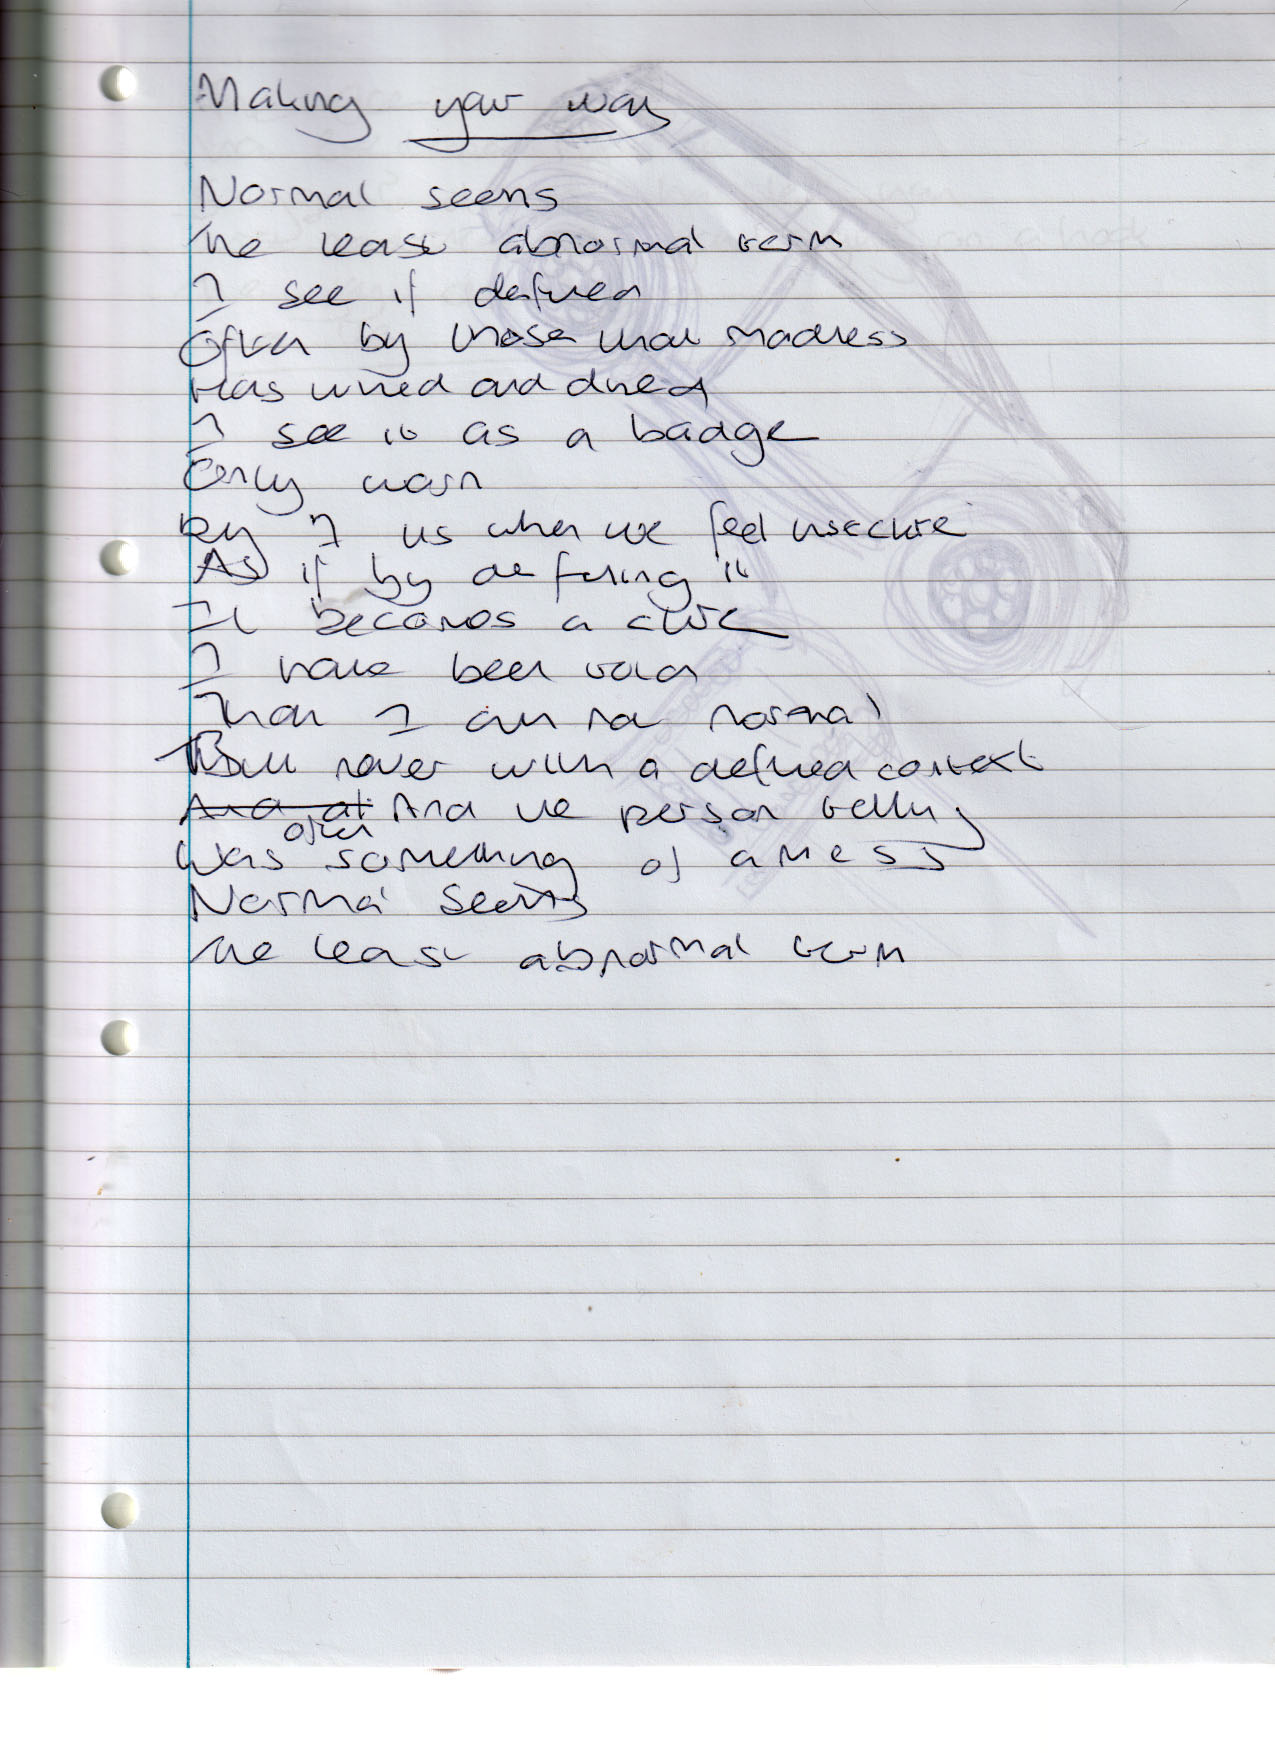 Making your way
Normal seems
The least abnormal term
I see it defined
Often by those that madness
Has wined and dined
I see it as a badge
Only worn
By us when we feel insecure
As if by defining it
It becomes a cure
I have been told
That I am not normal
But never with a defined context
And at And the person telling
often
Was something of a mess
Normal seems
The least abnormal term